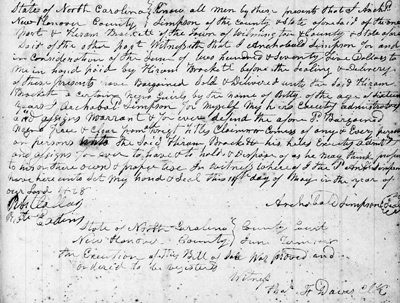 State of North Carolina } Know all men by these presents that I Archd.
New Hanover County } Simpson of the County & State aforesaid of the one
part & Hiram Brackett of the Town of Wilmington & County & State afore
said of the other part Witnesseth that I Archobald Simpson for and
in Consideration of the Sum of two hundred & Seventy five Dollars to
Me in hand paid by Hiram Brackett before the Sealing & Delivery
of these presents have Bargained Sold & Delivered unto the Said Hiram
Brackett a Certain Negro Girl by the name of Betty of the age
years I Archobald Simpson for myself My heirs Executors administrators
and assigns Warrant & forever defend the afore Sd. Bargained
Negro free & Clear from the titles Claims or of any & Every person
or persons unto the Said Hiram Brackett & his heirs Executors
and assigns for ever to have & to hold & Dispose of as he may think proper
to his or there own & proper use In witness whereof I the Said Simpson
have here unto Set my hand & Seal this 19th day of May in the year of
our Lord 1828
Archobald Simpson
State of North Carolina } County Court
New Hanover County } June Term
the Execution of this Bill of Sale was proved and
ordered to be registered
Witness
Thos. F Davis Clk